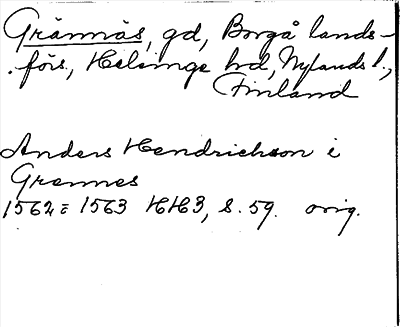 Grännäs, gd, Borgå lands-
förs., Helsinge hd, Nylands l.,
Finland
Anders Hendrichson i
Grennes
1562 = 1563 HH3, s. 59. orig.